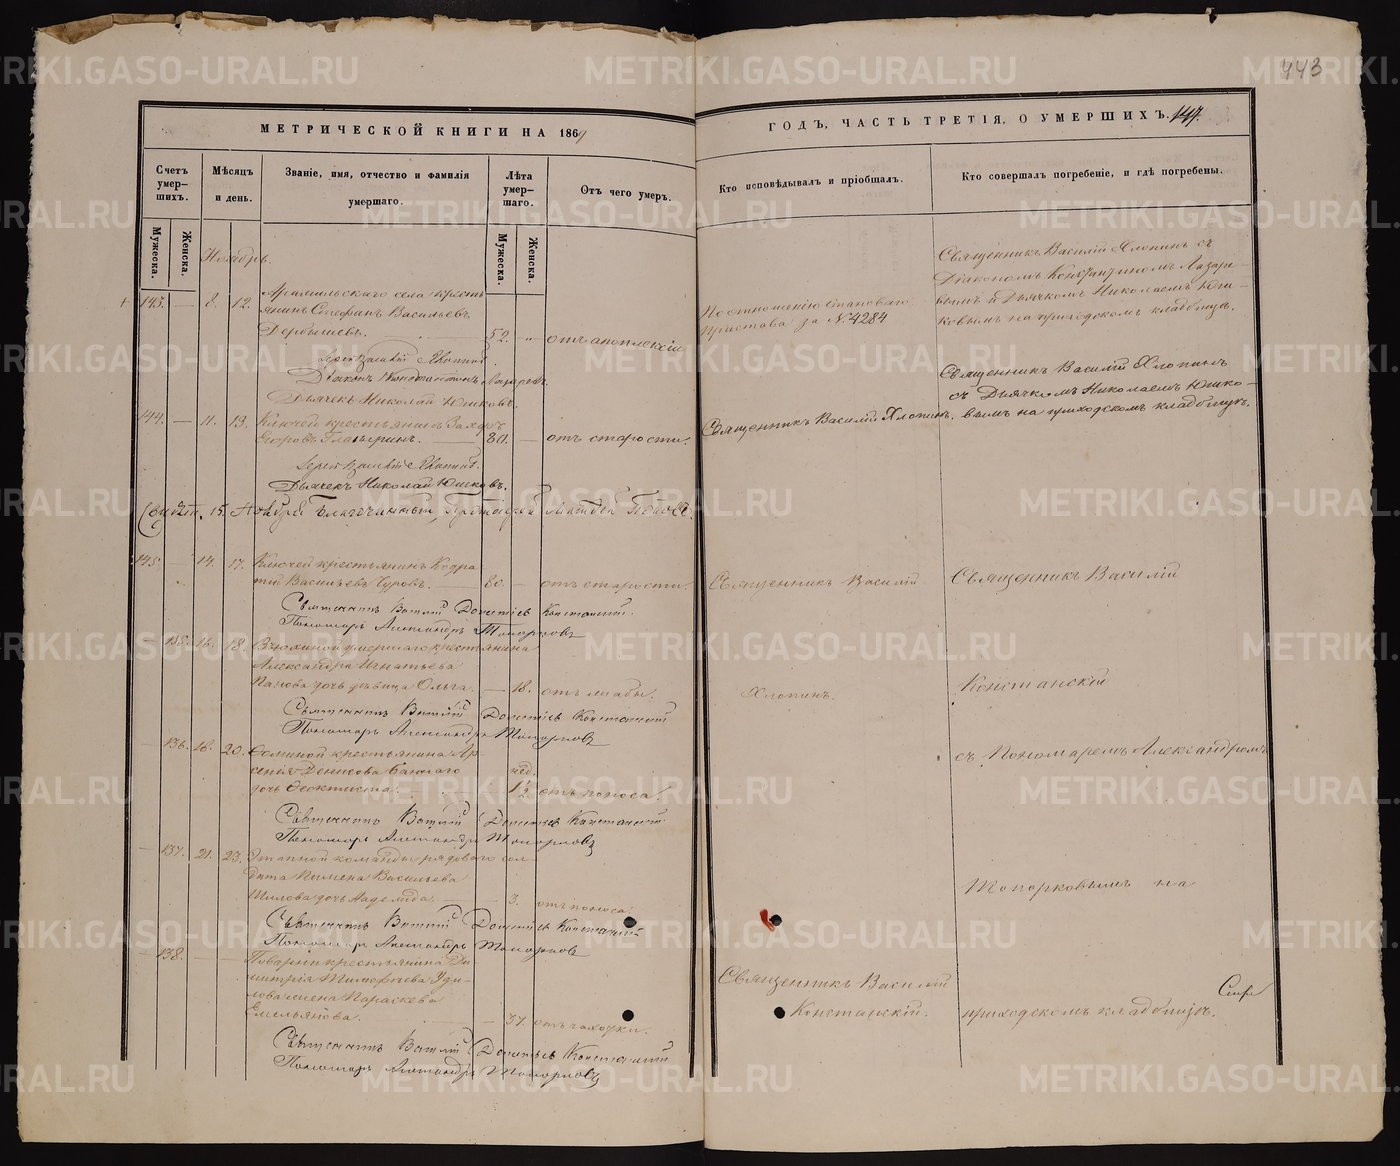 443
МЕТРИЧЕСКОЙ КНИГИ НА 1869
ГОДЪ, ЧАСТЬ ТРЕТІЯ, О УМЕРШИХЪ. 147.
Счетъ умер- шихъ.
Мѣсяцъ и день.
Званіе, имя, отчество и фамилія умершаго.
Лѣта умер- шаго.
Отъ чего умеръ.
Кто исповѣдывалъ и пріобщалъ.
Кто совершалъ погребеніе, и гдѣ погребены.
Мужеска.
Женска.
Мужеска.
Женска.
Ноябрь.
143. — 8. 12. Арамильскаго села кресть
янинъ Стефанъ Васильевъ
Дербышевъ. 52. — отъ апоплексіи
По отношенію Становаго
Пристава за № 4284
Священникъ Василій Хлопинъ съ
Діакономъ Константиномъ Лазаре
вымъ и Дьячкомъ Николаемъ Юш-
ковымъ на приходскомъ кладбищѣ.
Іерей Василій Хлопинъ.
Діаконъ Константинъ Лазаревъ.
Дьячекъ Николай Юшковъ.
144. — 11. 13. Ключей крестьянинъ Захаръ
Егоровъ — 80. — отъ старости.
Священникъ Василій Хлопинъ.
Священникъ Василій Хлопинъ
съ Дьячкомъ Николаемъ Юшко-
вымъ на приходскомъ кладбищѣ.
Іерей Василій Хлопинъ.
Дьячекъ Николай Юшковъ.
15 Ноября Благочинный, Протоіерей
145. — 14. 17. Ключей крестьянинъ Кодра
тій Васильевъ Чуровъ. — 80. — отъ старости.
Священникъ Василій
Священникъ Василій
Священникъ Василій Доментіевъ Констанскій.
Пономарь Александръ Топорковъ
— 135. 16. 18. умершаго крестьянина
Александра Игнатьева
Панова дочь дѣвица Ольга. — 18. отъ
Хлопинъ.
Констанскій
Священникъ Василій Доментіевъ Констанскій
Пономарь Александръ Топорковъ
— 136. 18. 20. крестьянина Ар
сенія Денисова
дочь Феоктиста. нед. 1½ отъ поноса.
съ Пономаремъ Александромъ
Священникъ Василій Доментіевъ Констанскій
Пономарь Александръ Топорковъ
— 137. 21. 23. Этапной команды рядоваго сол-
дата Пимена Васильева
Шилова дочь Надежда. — 3. отъ поноса.
Топорковымъ на
Священникъ Василій Доментіевъ Констанскій
Пономарь Александръ Топорковъ
— 138. — — крестьянина Ди-
митрія Тимофѣева Уди-
лова жена Параскева
Емельянова. — 37. отъ чахотки.
Священникъ Василій
Констанскій.
приходскомъ кладбищѣ.
Священникъ Василій Доментіевъ Констанскій
Пономарь Александръ Топорковъ
METRIKI.GASO-URAL.RU